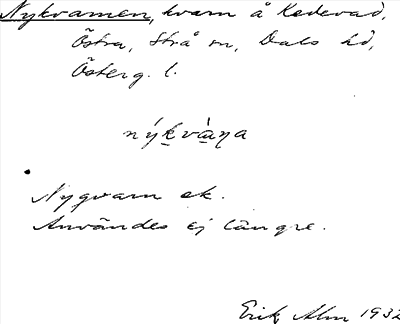 Nykvarnen, kvarn å Kedevad,
Östra, Strå sn, Dals hd,
Österg. l.
nýkvà̱ṇa
Nygvarn ek.
Användes ej längre.
Erik Alm 1932